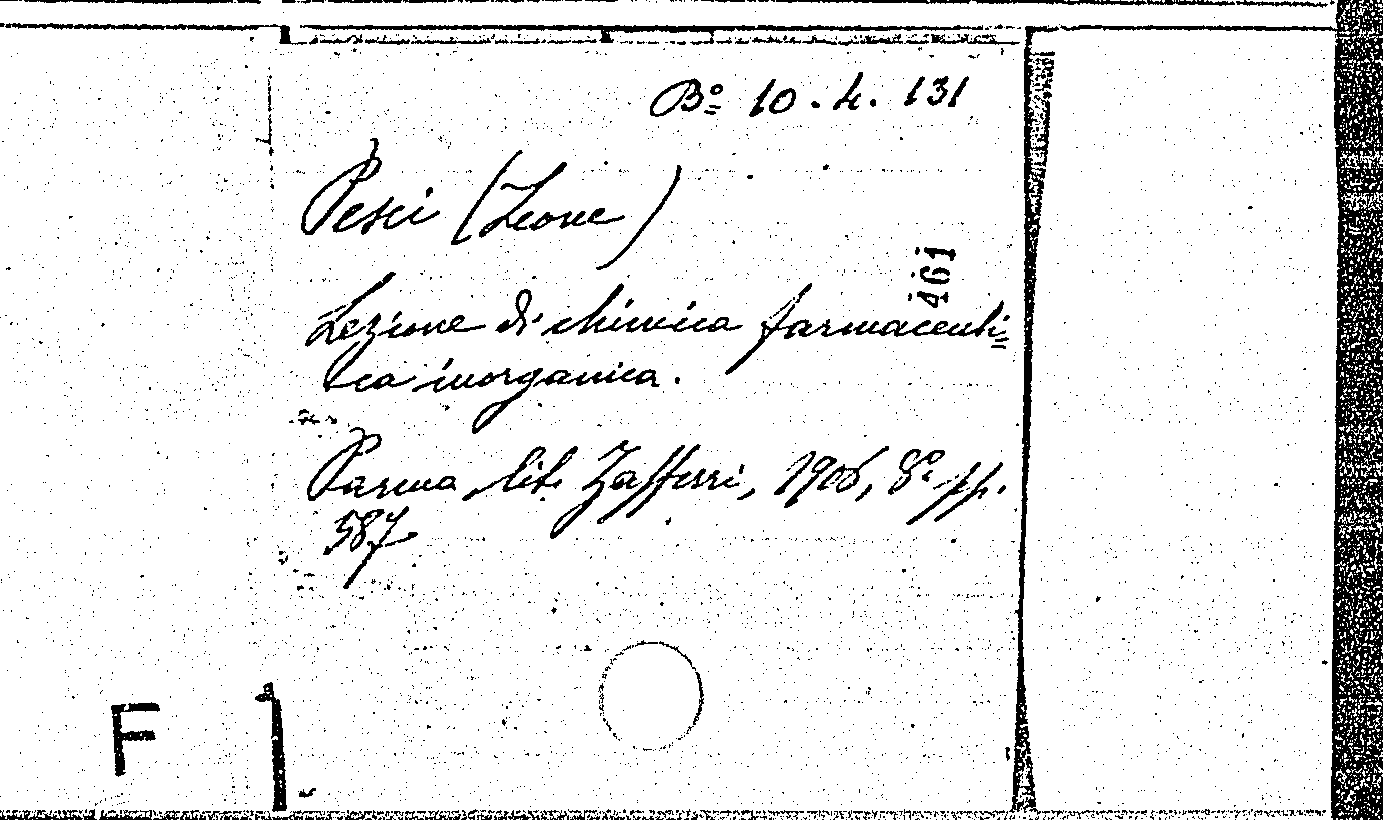 Bº 10.4.131
Pesci (Leone)
461
Lezione di chimica farmaceuti=
ca inorganica.
Parma, lit. Zafferri, 1906, 8º pp.
587
F